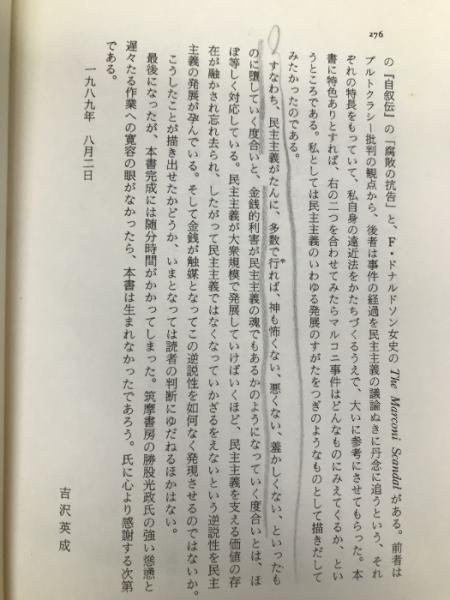 276
の『自叙伝』の「腐敗の抗告」と、F・ドナルドソン女史の The Marconi Scandal がある。前者は
プルトクラシー批判の観点から、後者は事件の経過を民主主義の議論ぬきに丹念に追うという、それ
ぞれの特長をもっていて、私自身の遠近法をかたちづくるうえで、大いに参考にさせてもらった。本
書に特色ありとすれば、右の二つを合わせてみたらマルコニ事件はどんなものにみえてくるか、とい
うところである。私としては民主主義のいわゆる発展のすがたをつぎのようなものとして描きだして
みたかったのである。
すなわち、民主主義がたんに、多数で行れば、神も怖くない、悪くない、羞かしくない、といったも
のに堕していく度合いと、金銭的利害が民主主義の魂でもあるかのようになっていく度合いとは、ほ
ぼ等しく対応している。民主主義が大衆規模で発展していけばいくほど、民主主義を支える価値の存
在が融かされ忘れ去られ、したがって民主主義ではなくなっていかざるをえないという逆説性を民主
主義の発展が孕んでいる。そして金銭が触媒となってこの逆説性を如何なく発現させるのではないか。
こうしたことが描き出せたかどうか、いまとなっては読者の判断にゆだねるほかはない。
最後になったが、本書完成には随分時間がかかってしまった。筑摩書房の勝股光政氏の強い慫慂と
遅々たる作業への寛容の眼がなかったら、本書は生まれなかったであろう。氏に心より感謝する次第
である。
一九八九年　八月二日
吉沢英成